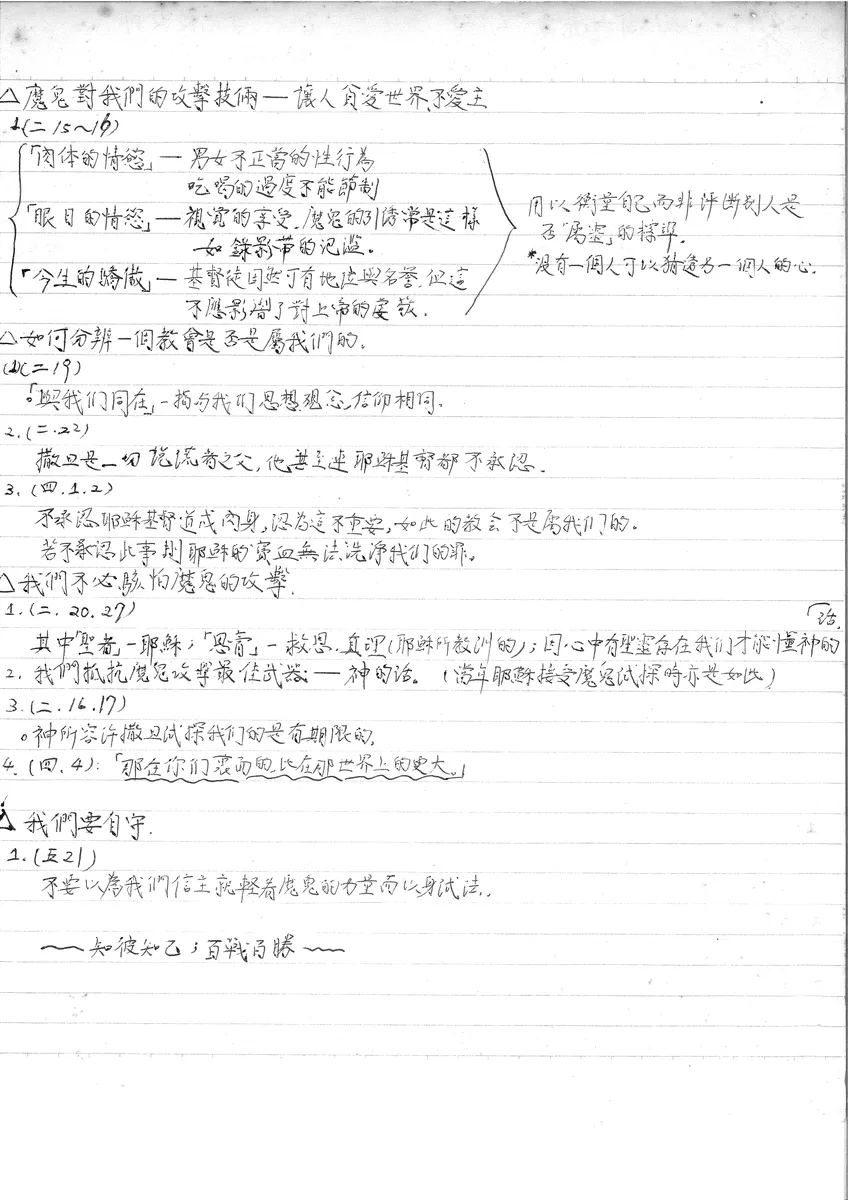 △魔鬼對我們的攻擊技倆—讓人貪愛世界、不愛主
1.(二15~16)
「肉体的情慾」—男女不正當的性行為
吃喝的過度不能節制
「眼目的情慾」—視覺的享受.魔鬼的引誘常是這樣
如錄影帶的氾濫。
「今生的驕傲」—基督徒固然可有地位與名譽.但這
不應影響了對上帝的
用以衡量自己而非評斷別人是
否"屬靈"的標準.
*沒有一個人可以猜透另一個人的心.
△如何分辨一個教會是否是屬我們的。
(1)(二19)
。「與我们同在」-指与我们思想.观念.信仰相同.
2.(二.22)
撒旦是一切說謊者之父,他甚至連耶穌基督都不承認.
3.(四.1.2)
不承認耶穌基督道成肉身,認為這不重要,如此的教会不是屬我们的。
若不承認此事則耶穌的寶血無法洗淨我们的罪。
△我們不必駭怕魔鬼的攻擊.
1.(二.20.27)
其中「聖者」-耶穌;「恩膏」-救恩.真理(耶穌所教訓的);因心中有聖靈存在我们才能懂神的話.
2.我們抵抗魔鬼攻擊最佳武器—神的话。(當年耶穌接受魔鬼試探時亦是如此)
3.(二.16.17)
。神所容许撒旦试探我们的是有期限的.
4.(四.4):「那在你们裏面的.比在那世界上的更大。」
△我們要自守.
1.(五21)
不要以為我們信主就輕看魔鬼的力量而以身試法..
~~知彼知己;百戰百勝~~